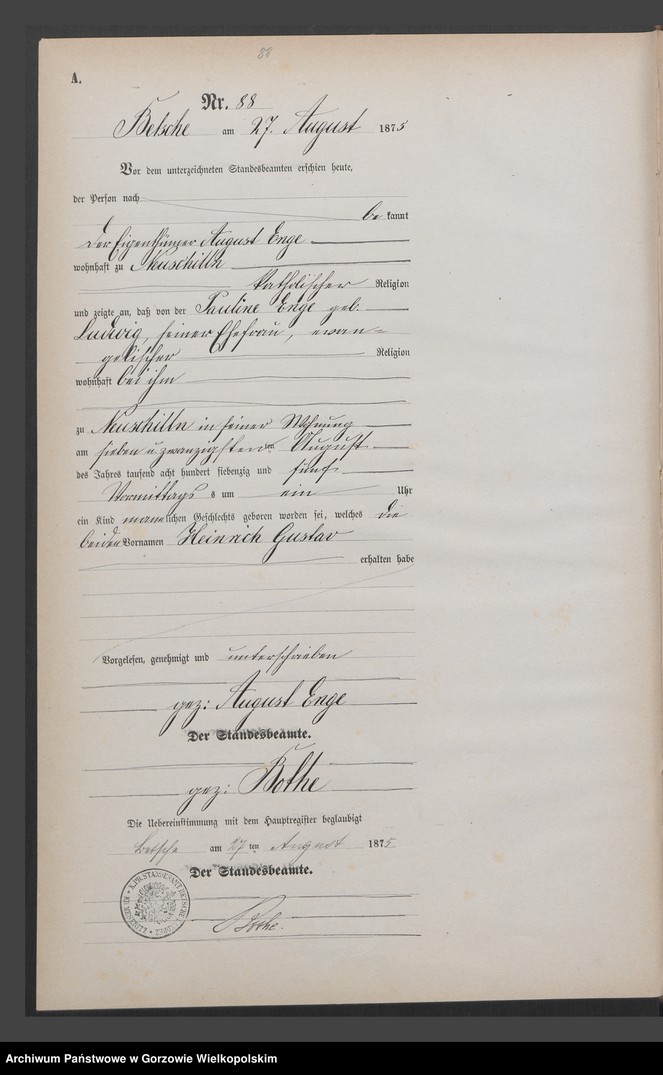 88
A.
Nr. 88
Betsche am 27. August 1875
Vor dem unterzeichneten Standesbeamten erschien heute,
der Person nach
be kannt
der Eigenthümer August Enge
wohnhaft zu Neuschilln
katholischer Religion
und zeigte an, daß von der Pauline Enge geb.
Ludwig, seiner Ehefrau, evan-
gelischer Religion
wohnhaft bei ihm
zu Neuschilln in seiner Wohnung
am sieben u. zwanzigsten ten August
des Jahres tausend acht hundert siebenzig und fünf
Vormittags s um ein Uhr
ein Kind männlichen Geschlechts geboren worden sei, welches die
beiden Vornamen Heinrich Gustav
erhalten habe
Vorgelesen, genehmigt und unterschrieben
gez: August Enge
Der Standesbeamte.
gez: Bothe
Die Uebereinstimmung mit dem Hauptregister beglaubigt
Betsche am 27 ten August 1875
Der Standesbeamte.
Bothe.
Archiwum Państwowe w Gorzowie Wielkopolskim